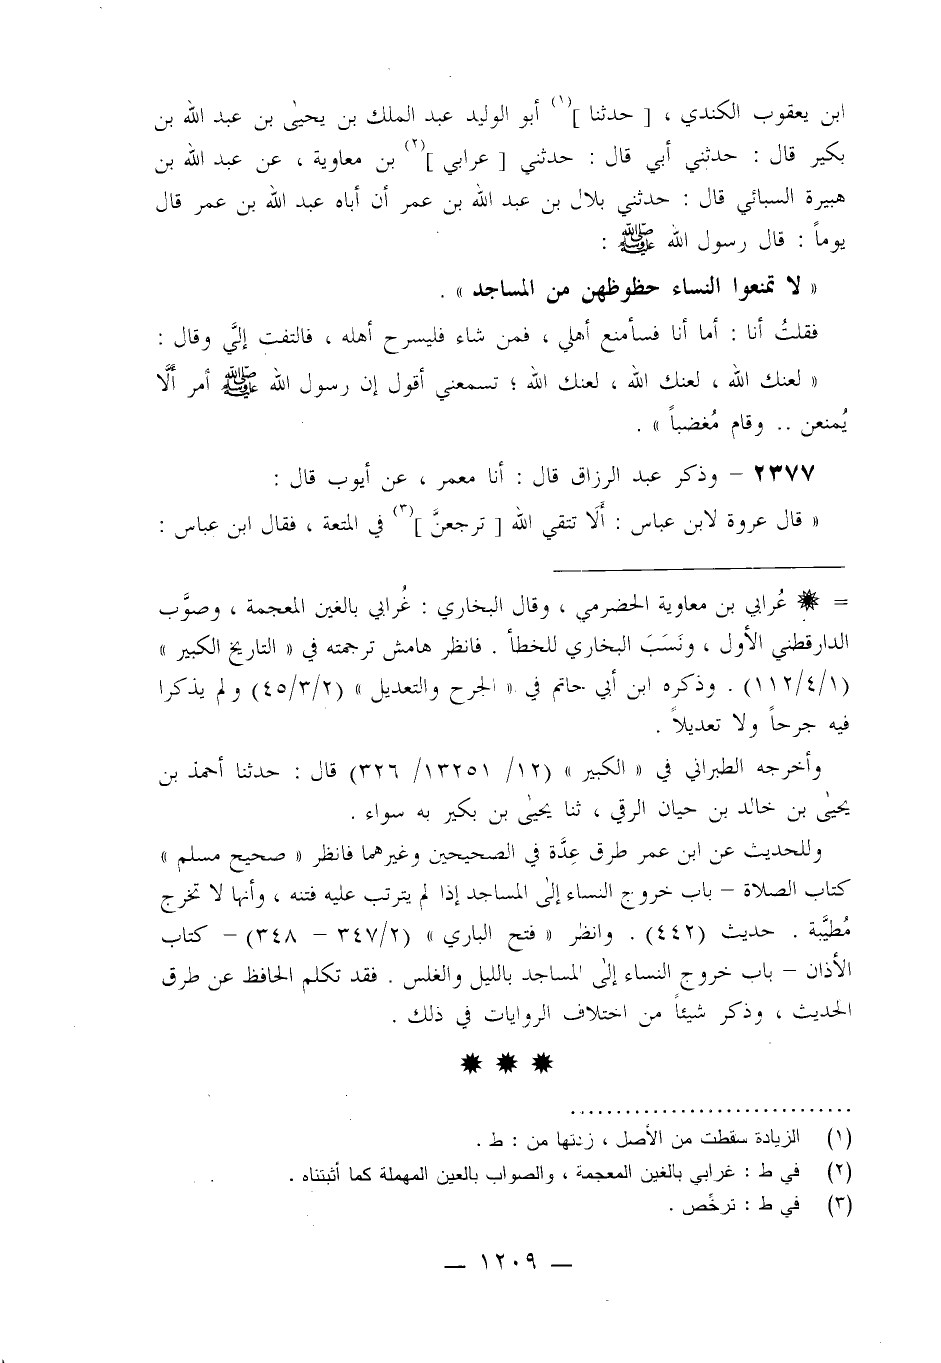 ابن يعقوب الكندي ، [ حدثنا ](١) أبو الوليد عبد الملك بن يحيىٰ بن عبد الله بن
بكير قال : حدثني أبي قال : حدثني [ عرابي ](٢) بن معاوية ، عن عبد الله بن
هبيرة السبائي قال : حدثني بلال بن عبد الله بن عمر أن أباه عبد الله بن عمر قال
يوماً : قال رسول الله ﷺ :
« لا تمنعوا النساء حظوظهن من المساجد » .
فقلتُ أنا : أما أنا فسأمنع أهلي ، فمن شاء فليسرح أهله ، فالتفت إليَّ وقال :
« لعنك الله ، لعنك الله ، لعنك الله ؛ تسمعني أقول إن رسول الله ﷺ أمر ألَّا
يُمنعن .. وقام مُغضباً » .
٢٣٧٧ – وذكر عبد الرزاق قال : أنا معمر ، عن أيوب قال :
« قال عروة لابن عباس : أَلَا تتقي الله [ ترجعنَّ ](٣) في المتعة ، فقال ابن عباس :
= ✹ عُرابي بن معاوية الحضرمي ، وقال البخاري : غُرابي بالغين المعجمة ، وصوَّب
الدارقطني الأول ، ونَسَبَ البخاري للخطأ . فانظر هامش ترجمته في « التاريخ الكبير »
(١١٢/٤/١) . وذكره ابن أبي حاتم في « الجرح والتعديل » (٤٥/٣/٢) ولم يذكرا
فيه جرحاً ولا تعديلاً .
وأخرجه الطبراني في « الكبير » (١٢/ ١٣٢٥١/ ٣٢٦) قال : حدثنا أحمد بن
يحيىٰ بن خالد بن حيان الرقي ، ثنا يحيىٰ بن بكير به سواء .
وللحديث عن ابن عمر طرق عِدَّة في الصحيحين وغيرهما فانظر « صحيح مسلم »
كتاب الصلاة – باب خروج النساء إلىٰ المساجد إذا لم يترتب عليه فتنه ، وأنها لا تخرج
مُطيَّبة . حديث (٤٤٢) . وانظر « فتح الباري » (٣٤٧/٢ – ٣٤٨) – كتاب
الأذان – باب خروج النساء إلىٰ المساجد بالليل والغلس . فقد تكلم الحافظ عن طرق
الحديث ، وذكر شيئاً من اختلاف الروايات في ذلك .
✹ ✹ ✹
(١) الزيادة سقطت من الأصل ، زدتها من : ط .
(٢) في ط : غرابي بالغين المعجمة ، والصواب بالعين المهملة كما أثبتناه .
(٣) في ط : ترخِّص .
— ١٢٠٩ —